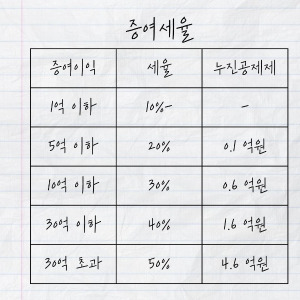 증여세율
증여이익 세율 누진공제제
1억 이하 10%- -
5억 이하 20% 0.1 억원
10억 이하 30% 0.6 억원
30억 이하 40% 1.6 억원
30억 초과 50% 4.6 억원